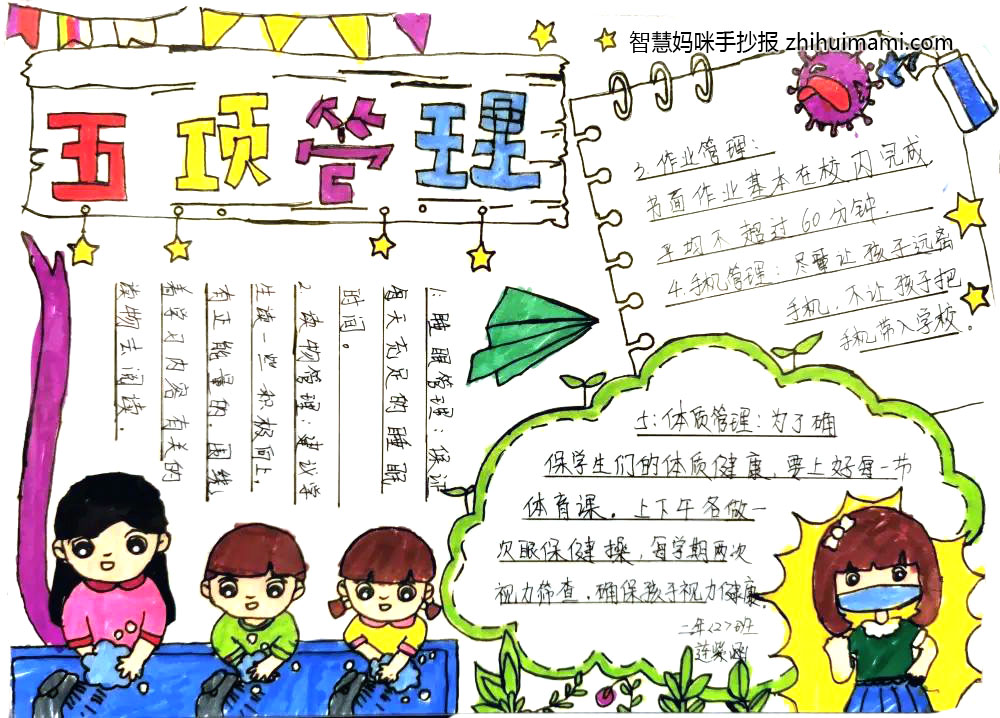 智慧妈咪手抄报 zhihuimami.com
五项管理
1:睡眠管理:保证
每天充足的睡眠
时间。
2 读物管理:建议学
生读一些积极向上,
有正能量的.围绕
着学习内容有关的
读物去阅读.
3.作业管理:
书面作业基本在校内完成
平均不超过60分钟.
4.手机管理:尽量让孩子远离
手机,不让孩子把
手机带入学校。
5:体质管理:为了确
保学生们的体质健康,要上好每一节
体育课。上下午各做一
次眼保健操,每学期两次
视力筛查.确保孩子视力健康.
二年<2>班